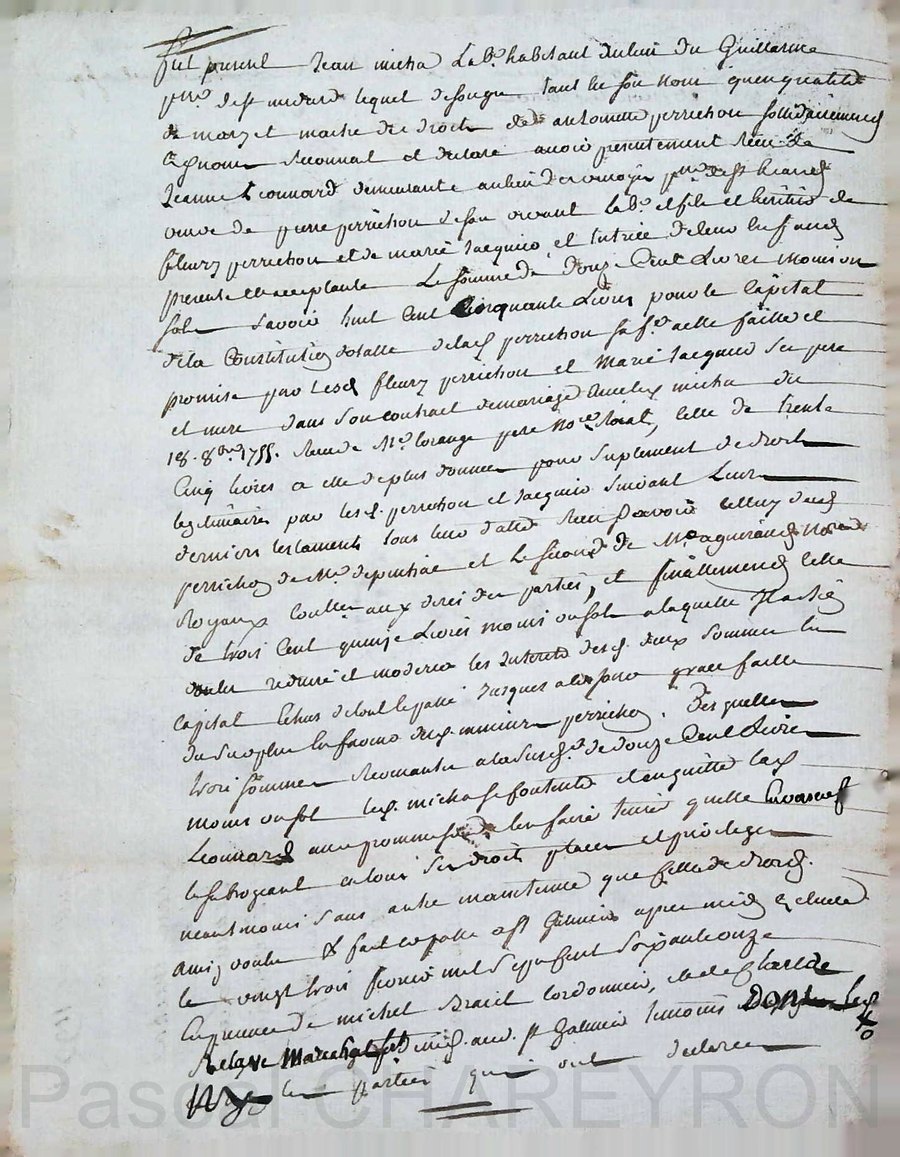 fut present Jean micha Lab.r habitant du lieu du Guillarme
p.sse de st medard lequel de son gre tant en son nom qu'en qualité
de mary et maitre des droits de antoinette perrichon sollidairement
reconnait et declare avoir presentement Receu de
Jeanne Leonnard demeurante au lieu de p.sse de st heand
veuve de pierre perrichon de son vivant lab.r et fils et heritier de
fleury perrichon et de marie Jacquier et tutrice de leurs enfands
presente et acceptante La somme de douze Cent Livres moins un
sols savoir huit Cent Cinquante Livres pour le Capital
de la Constitution dotalle de lad perrichon sa f.e a elle faitte et
promise par lesd fleury perrichon et Marie Jacquier ses pere
et mere dans son contract de mariage avec led micha du
18. 8bre 1755. Receu de M.e lorange pere No.re Royal, celle de trente
Cinq livres a elle de plus donnée pour suplement de droits
legitimaires par lesd. perrichon et Jacquier suivant Leurs
derniers testaments sous leurs dattes Receu savoir celluy dud
perrichon de M.e depinhac et le second de M.e aguiraud No.re
Royaux comme aux dires des parties, et finallement celle
de trois Cent quinze Livres moins un sols a laquelle
voulu reduire et moderer les Interets desd. deux sommes en
capital Echus de tout le passé Jusques a ce jour grace faitte
du surplus en faveur desd. mineurs perrichon. Desquelles
trois sommes Revenantes a la susd. de douze Cent Livres
moins un sol led. micha se contente et en quitte lad
Leonnard avec promesse de len faire tenir quitte Envers et
le subrogeant en tous ses droits places et privileges
neantmoins sans autre maintenue que celle de droit.
Ainsy voulu & fait et passé a st Galmier apres midy
le vingt trois fevrier mil sept cent soixante onze
En presence de michel Brail Cordonnier, de
Relave Marechal mid. aud. st Galmier temoins
les parties qui ont declaré
Pascal CHAREYRON